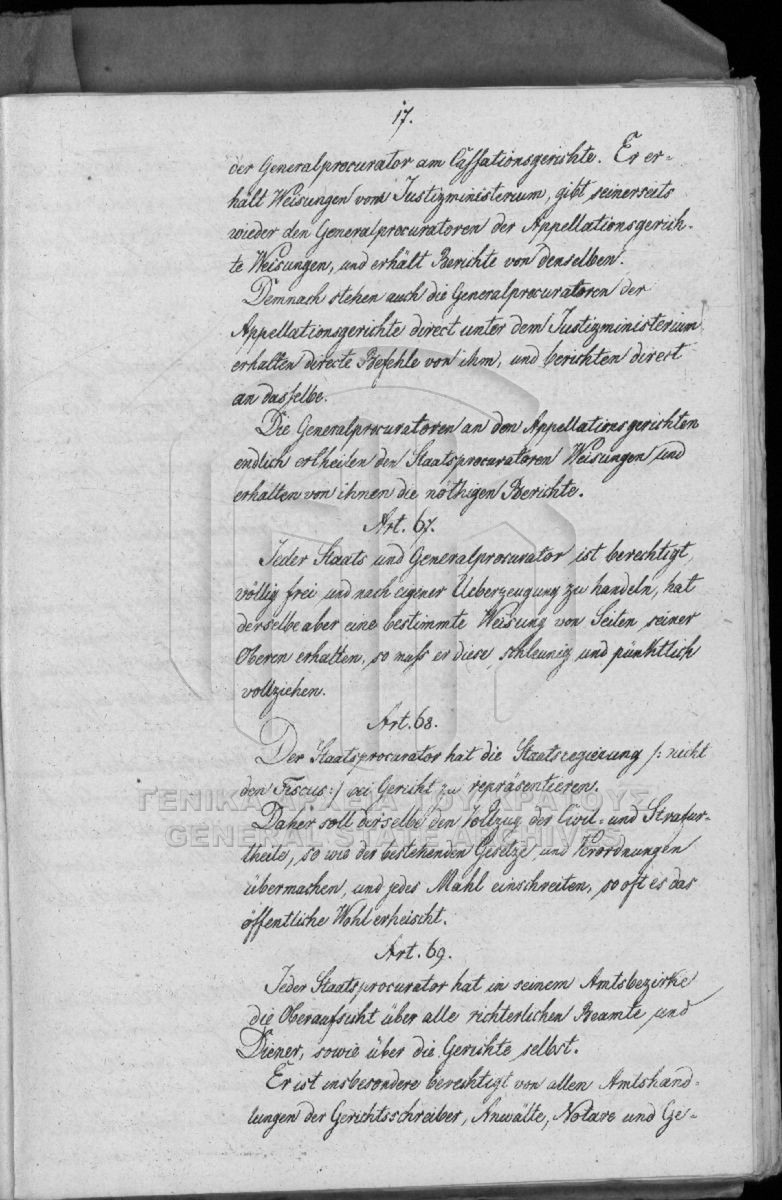 17.
der Generalprocurator am Cassationsgerichte. Er er-
hält Weisungen vom Justizministerium, gibt seinerseits
wieder den Generalprocuratoren der Appellationsgerich-
te Weisungen, und erhält Berichte von denselben.
Demnach stehen auch die Generalprocuratoren der
Appellationsgerichte direct unter dem Justizministerium
erhalten directe Befehle von ihm, und berichten direct
an dasselbe.
Die Generalprocuratoren an den Appellationsgerichten
endlich ertheilen den Staatsprocuratoren Weisungen und
erhalten von ihnen die nöthigen Berichte.
Art. 67.
Jeder Staats und Generalprocurator ist berechtigt,
völlig frei und nach eigener Ueberzeugung zu handeln, hat
derselbe aber eine bestimmte Weisung von Seiten seiner
Oberen erhalten, so muss er diese schleunig und pünktlich
vollziehen.
Art. 68.
Der Staatsprocurator hat die Staatsregierung /: nicht
den Fiscus :/ bei Gericht zu repräsentieren.
ΓΕΝΙΚΑ ΑΡΧΕΙΑ ΤΟΥ ΚΡΑΤΟΥΣ
Daher soll derselbe den Vollzug der Civil- und Strafur-
GENERAL STATE ARCHIVES
theile, so wie der bestehenden Gesetze und Verordnungen
übermachen, und jedes Mahl einschreiten, so oft es das
öffentliche Wohl erheischt.
Art. 69.
Jeder Staatsprocurator hat in seinem Amtsbezirke
die Oberaufsicht über alle richterlichen Beamte und
Diener, sowie über die Gerichte selbst.
Er ist insbesondere berechtigt von allen Amtshand-
lungen der Gerichtsschreiber, Anwälte, Notare und Ge-